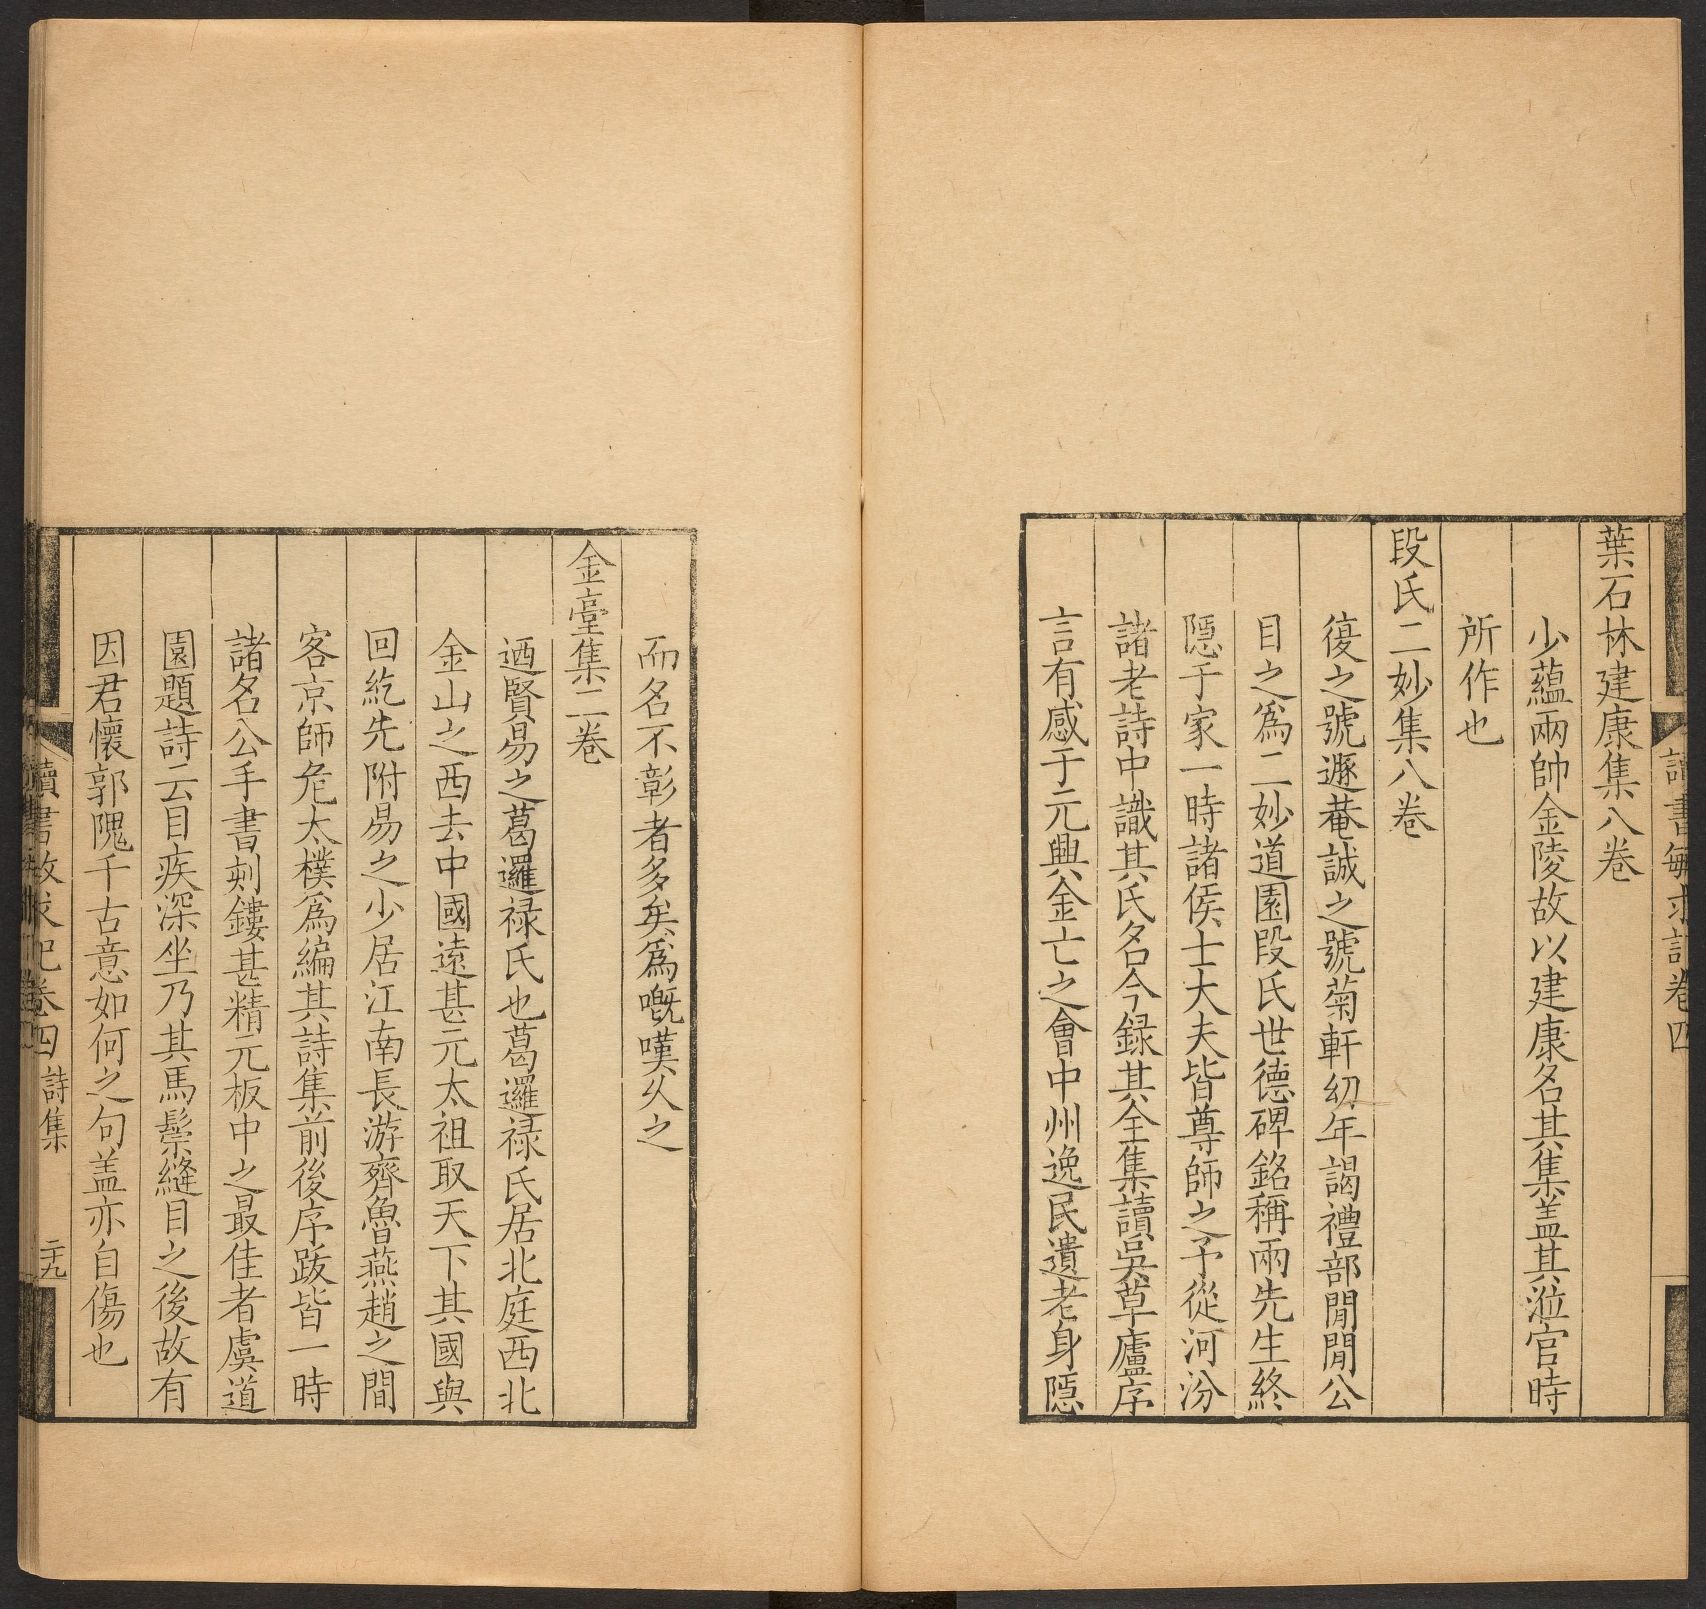 葉石林建康集八卷
少蘊兩帥金陵故以建康名其集盖其涖官時
所作也
段氏二妙集八卷
復之號遯菴誠之號菊軒幼年謁禮部閒閒公
目之爲二妙道園段氏世德碑銘稱兩先生終
隱于家一時諸侯士大夫皆尊師之予從河汾
諸老詩中識其氏名今録其全集讀吳草廬序
言有感于元興金亡之會中州逸民遺老身隱
而名不彰者多矣爲嘅嘆久之
金臺集二卷
迺賢易之葛邏禄氏也葛邏禄氏居北庭西北
金山之西去中國遠甚元太祖取天下其國與
回紇先附易之少居江南長游齊魯燕趙之間
客京師危太樸爲編其詩集前後序跋皆一時
諸名公手書刻鏤甚精元板中之最佳者虞道
園題詩云目疾深坐乃其馬鬃縫目之後故有
因君懷郭隗千古意如何之句盖亦自傷也
讀書敏求記卷四
讀書敏求記卷四 詩集 二十九